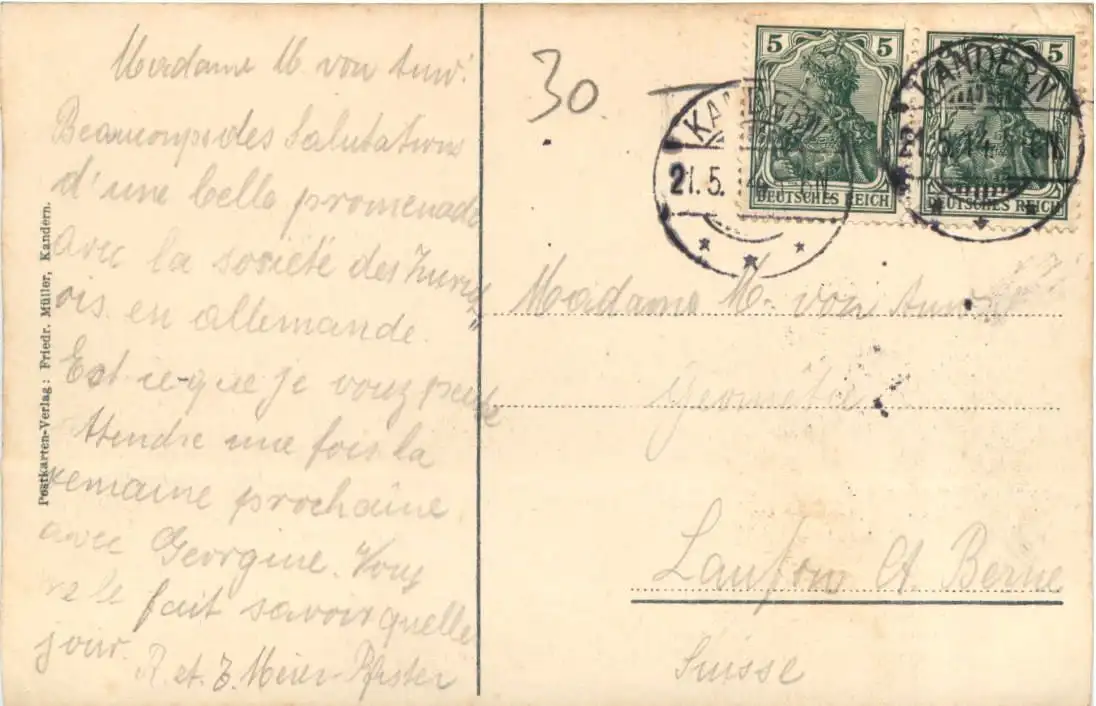 Madame M. von Arw.
Beaucoups des Salutations
d'une belle promenade
avec la société des Zuric
ois en allemande.
Est ce-que je vouz peux
Attendre une fois la
semaine prochaine
avec Georgine. Vous
le fait savoir quelle
jour. R. et. Z. Meier-Pfister
Postkarten-Verlag: Friedr. Müller, Kandern.
30.
5 5
DEUTSCHES REICH
5 5
DEUTSCHES REICH
KANDERN
21.5.
KANDERN
5.14
Madame M. von Arw.
Géomètre
Laufon Ct. Berne
Suisse